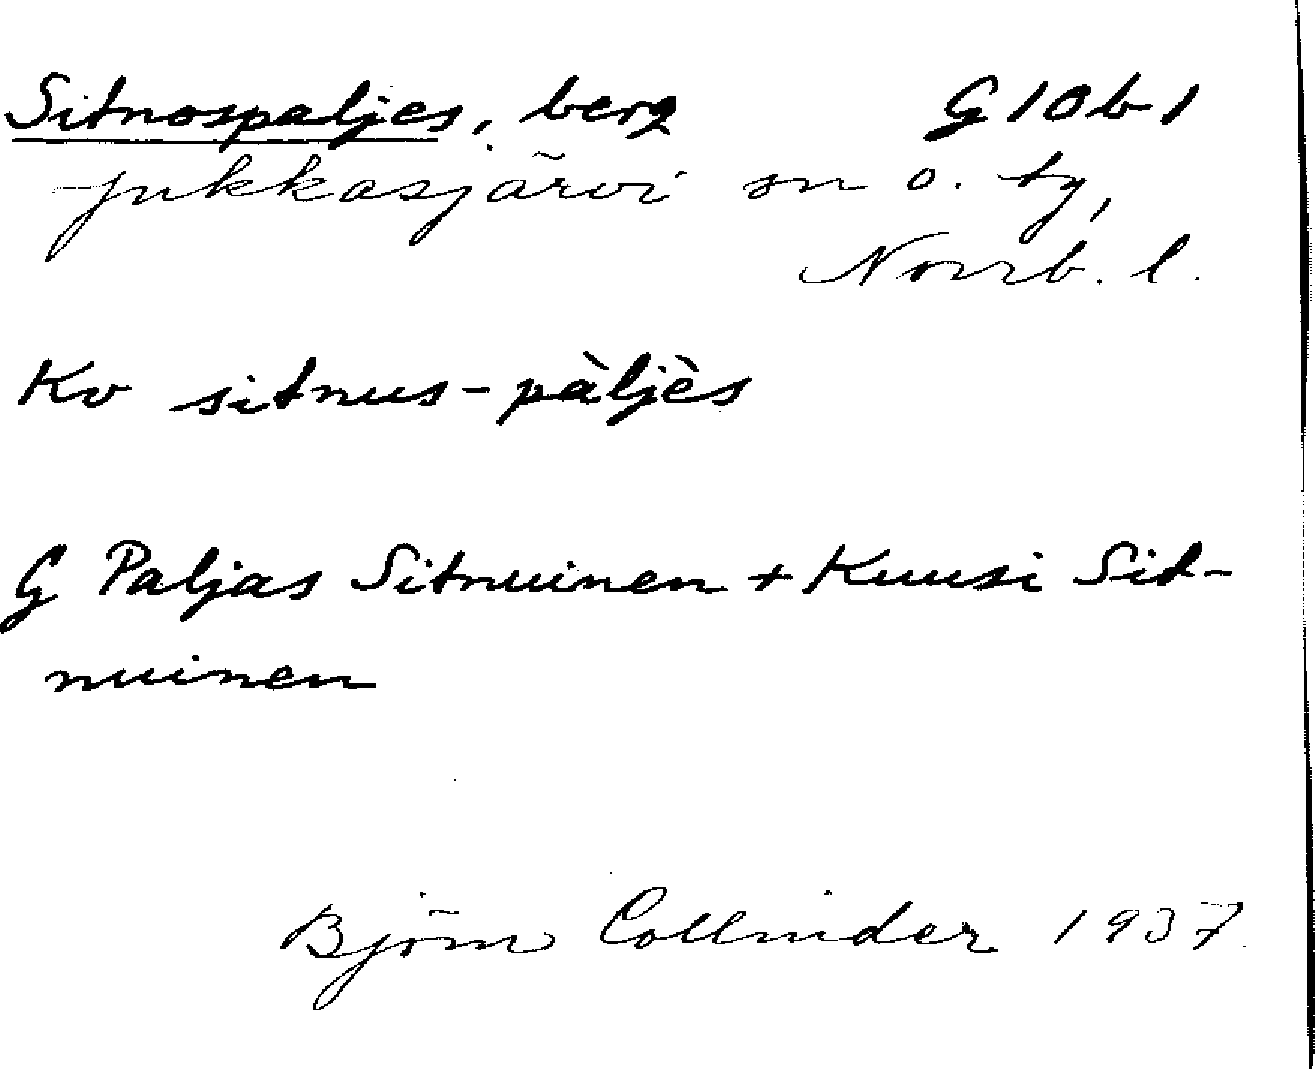 Sitnospaljes, berg G 10 b 1
Jukkasjärvi sn o. tg,
Norrb. l.
Kv sitnus-pàljès
G Paljas Sitnuinen + Kuusi Sit-
nuinen
Björn Collinder 1937